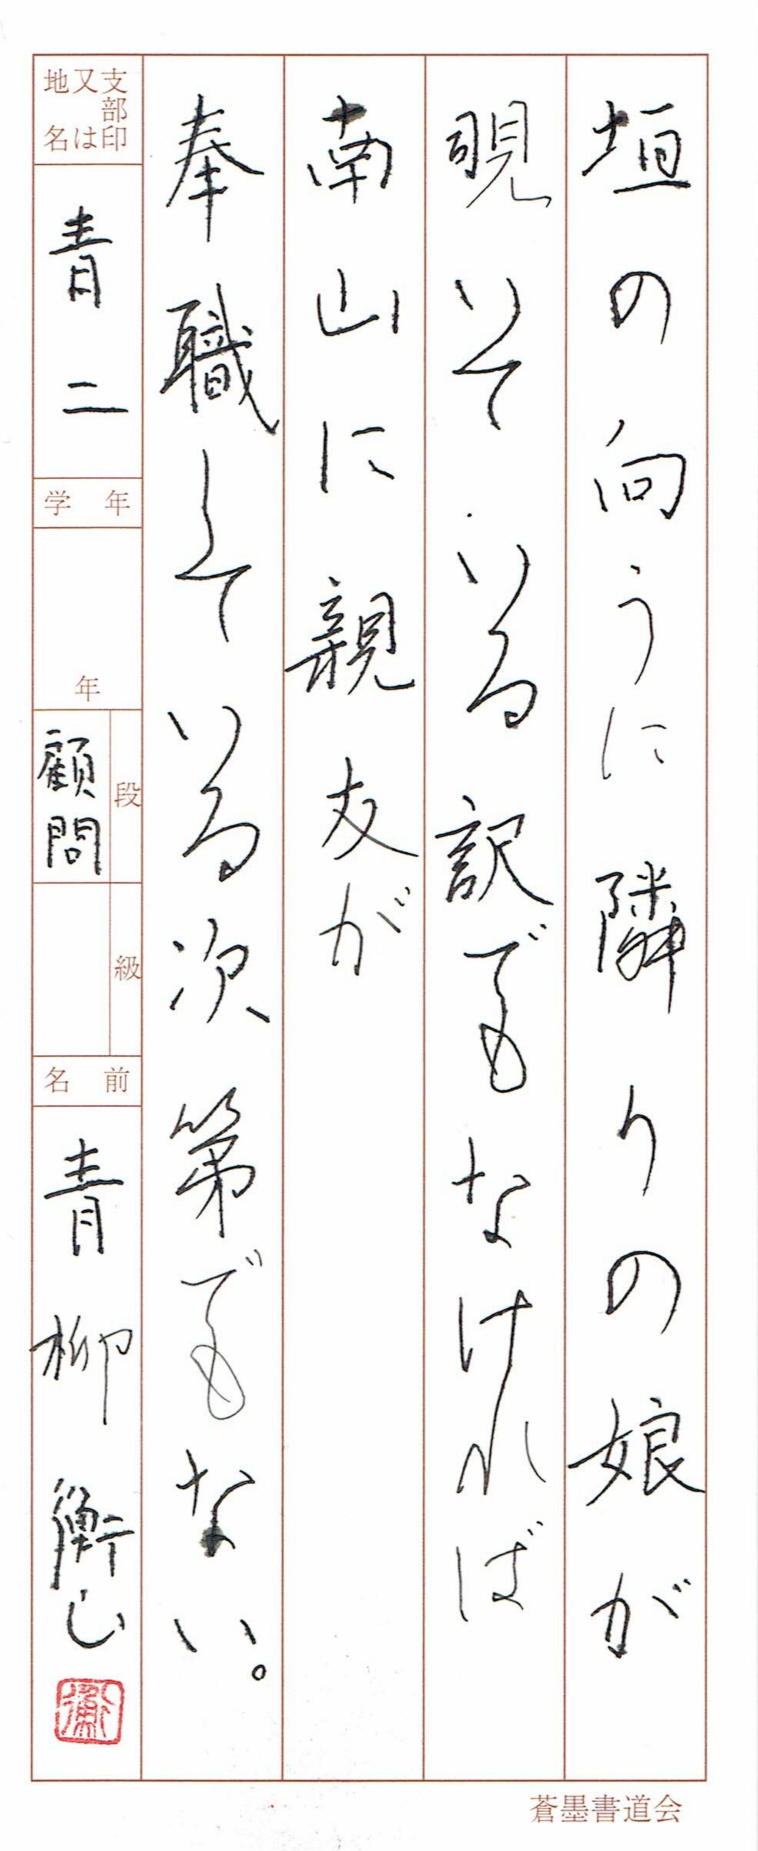 垣の向うに隣りの娘が
覗いている訳でもなければ
南山に親友が
奉職している次第でもない。
支部印
又は
地名
青二
学年
年
段
顧問
級
名前
青柳衡山
蒼墨書道会